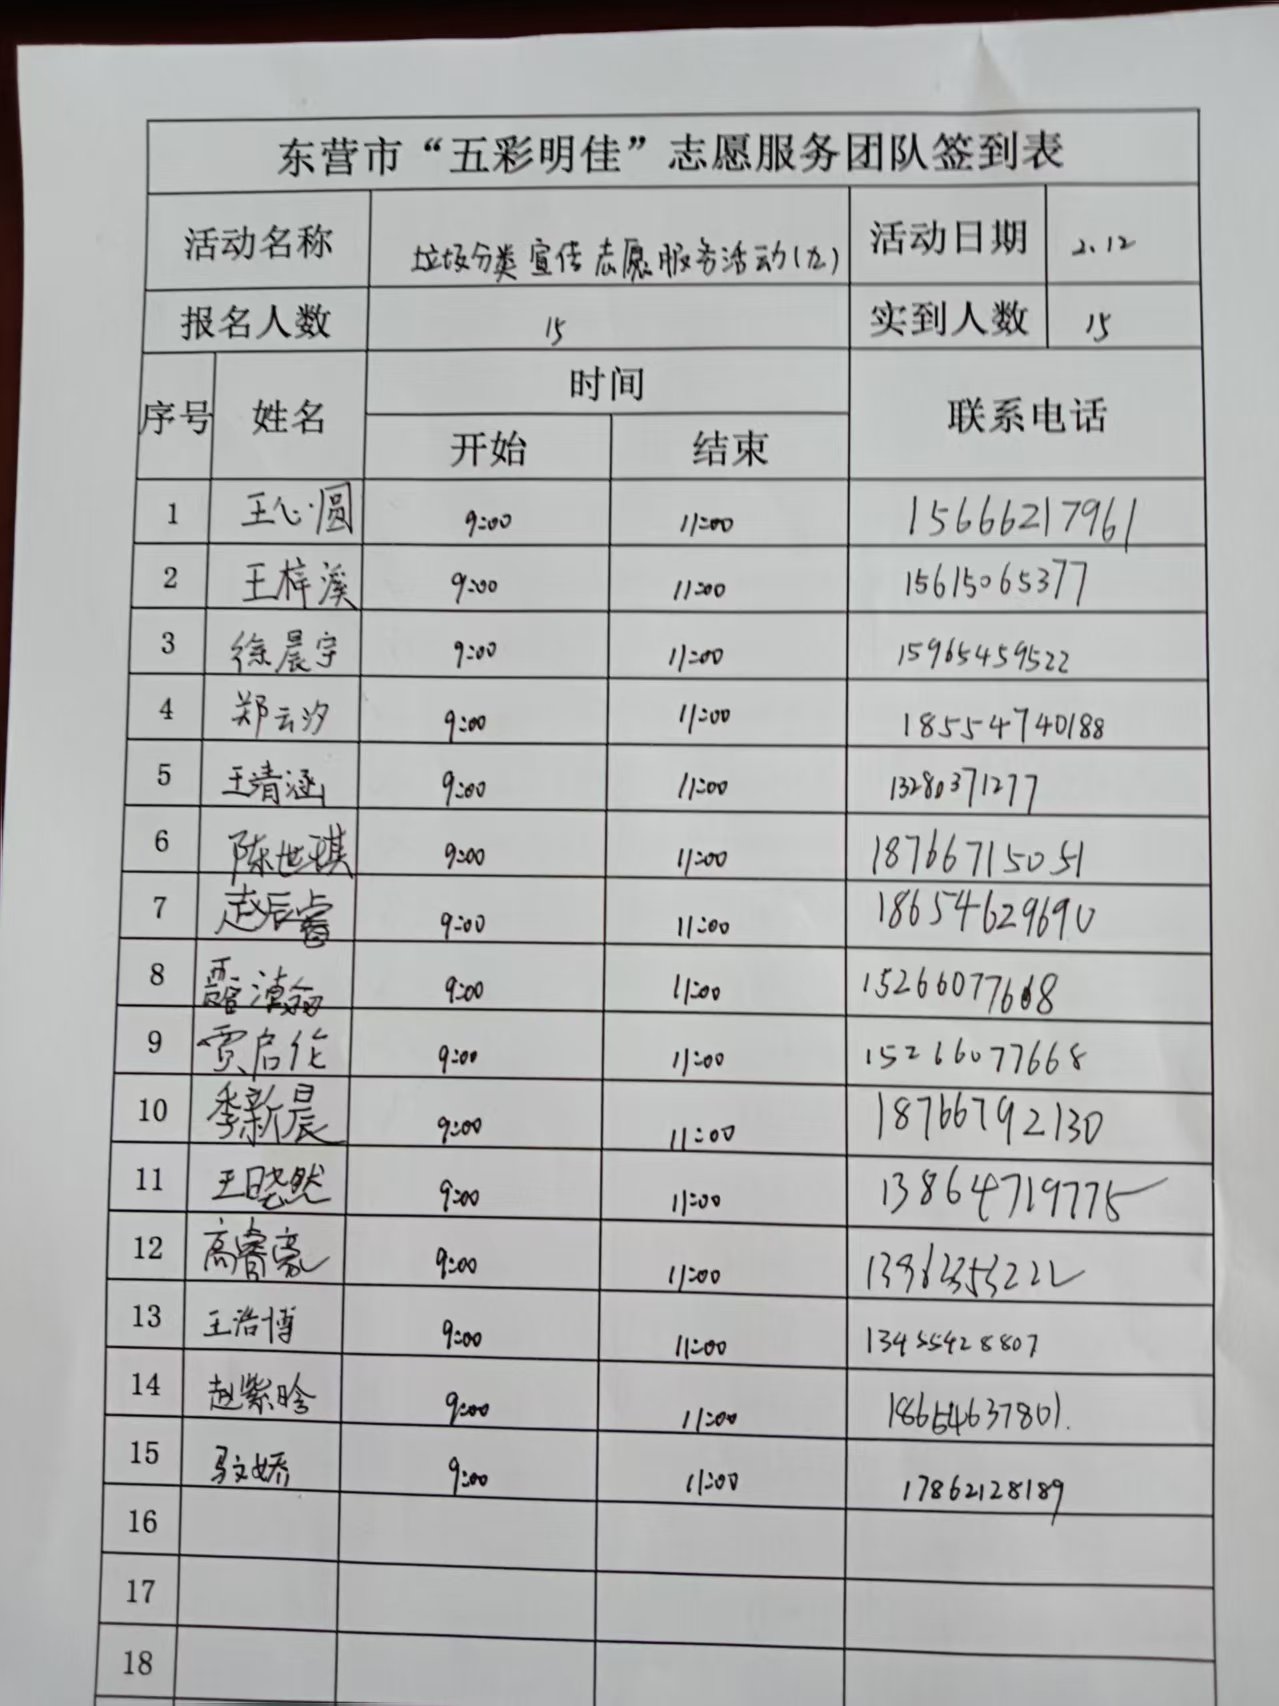 东营市“五彩明佳”志愿服务团队签到表
活动名称 垃圾分类宣传志愿服务活动(九) 活动日期 2.12
报名人数 15 实到人数 15
序号 姓名 时间 联系电话
开始 结束
1 王心圆 9:00 11:00 15666217961
2 王梓溪 9:00 11:00 15615065377
3 徐晨宇 9:00 11:00 15965459522
4 郑云汐 9:00 11:00 18554740188
5 王清涵 9:00 11:00 13280371277
6 陈世琪 9:00 11:00 18766715051
7 赵辰睿 9:00 11:00 18654629690
8 9:00 11:00 15266077668
9 贾启伦 9:00 11:00 15266077668
10 季新晨 9:00 11:00 18766792130
11 王晓然 9:00 11:00 13864719775
12 高睿豪 9:00 11:00
13 王浩博 9:00 11:00 13455428807
14 赵紫晗 9:00 11:00 18654637801.
15 马文娇 9:00 11:00 17862128189
16
17
18